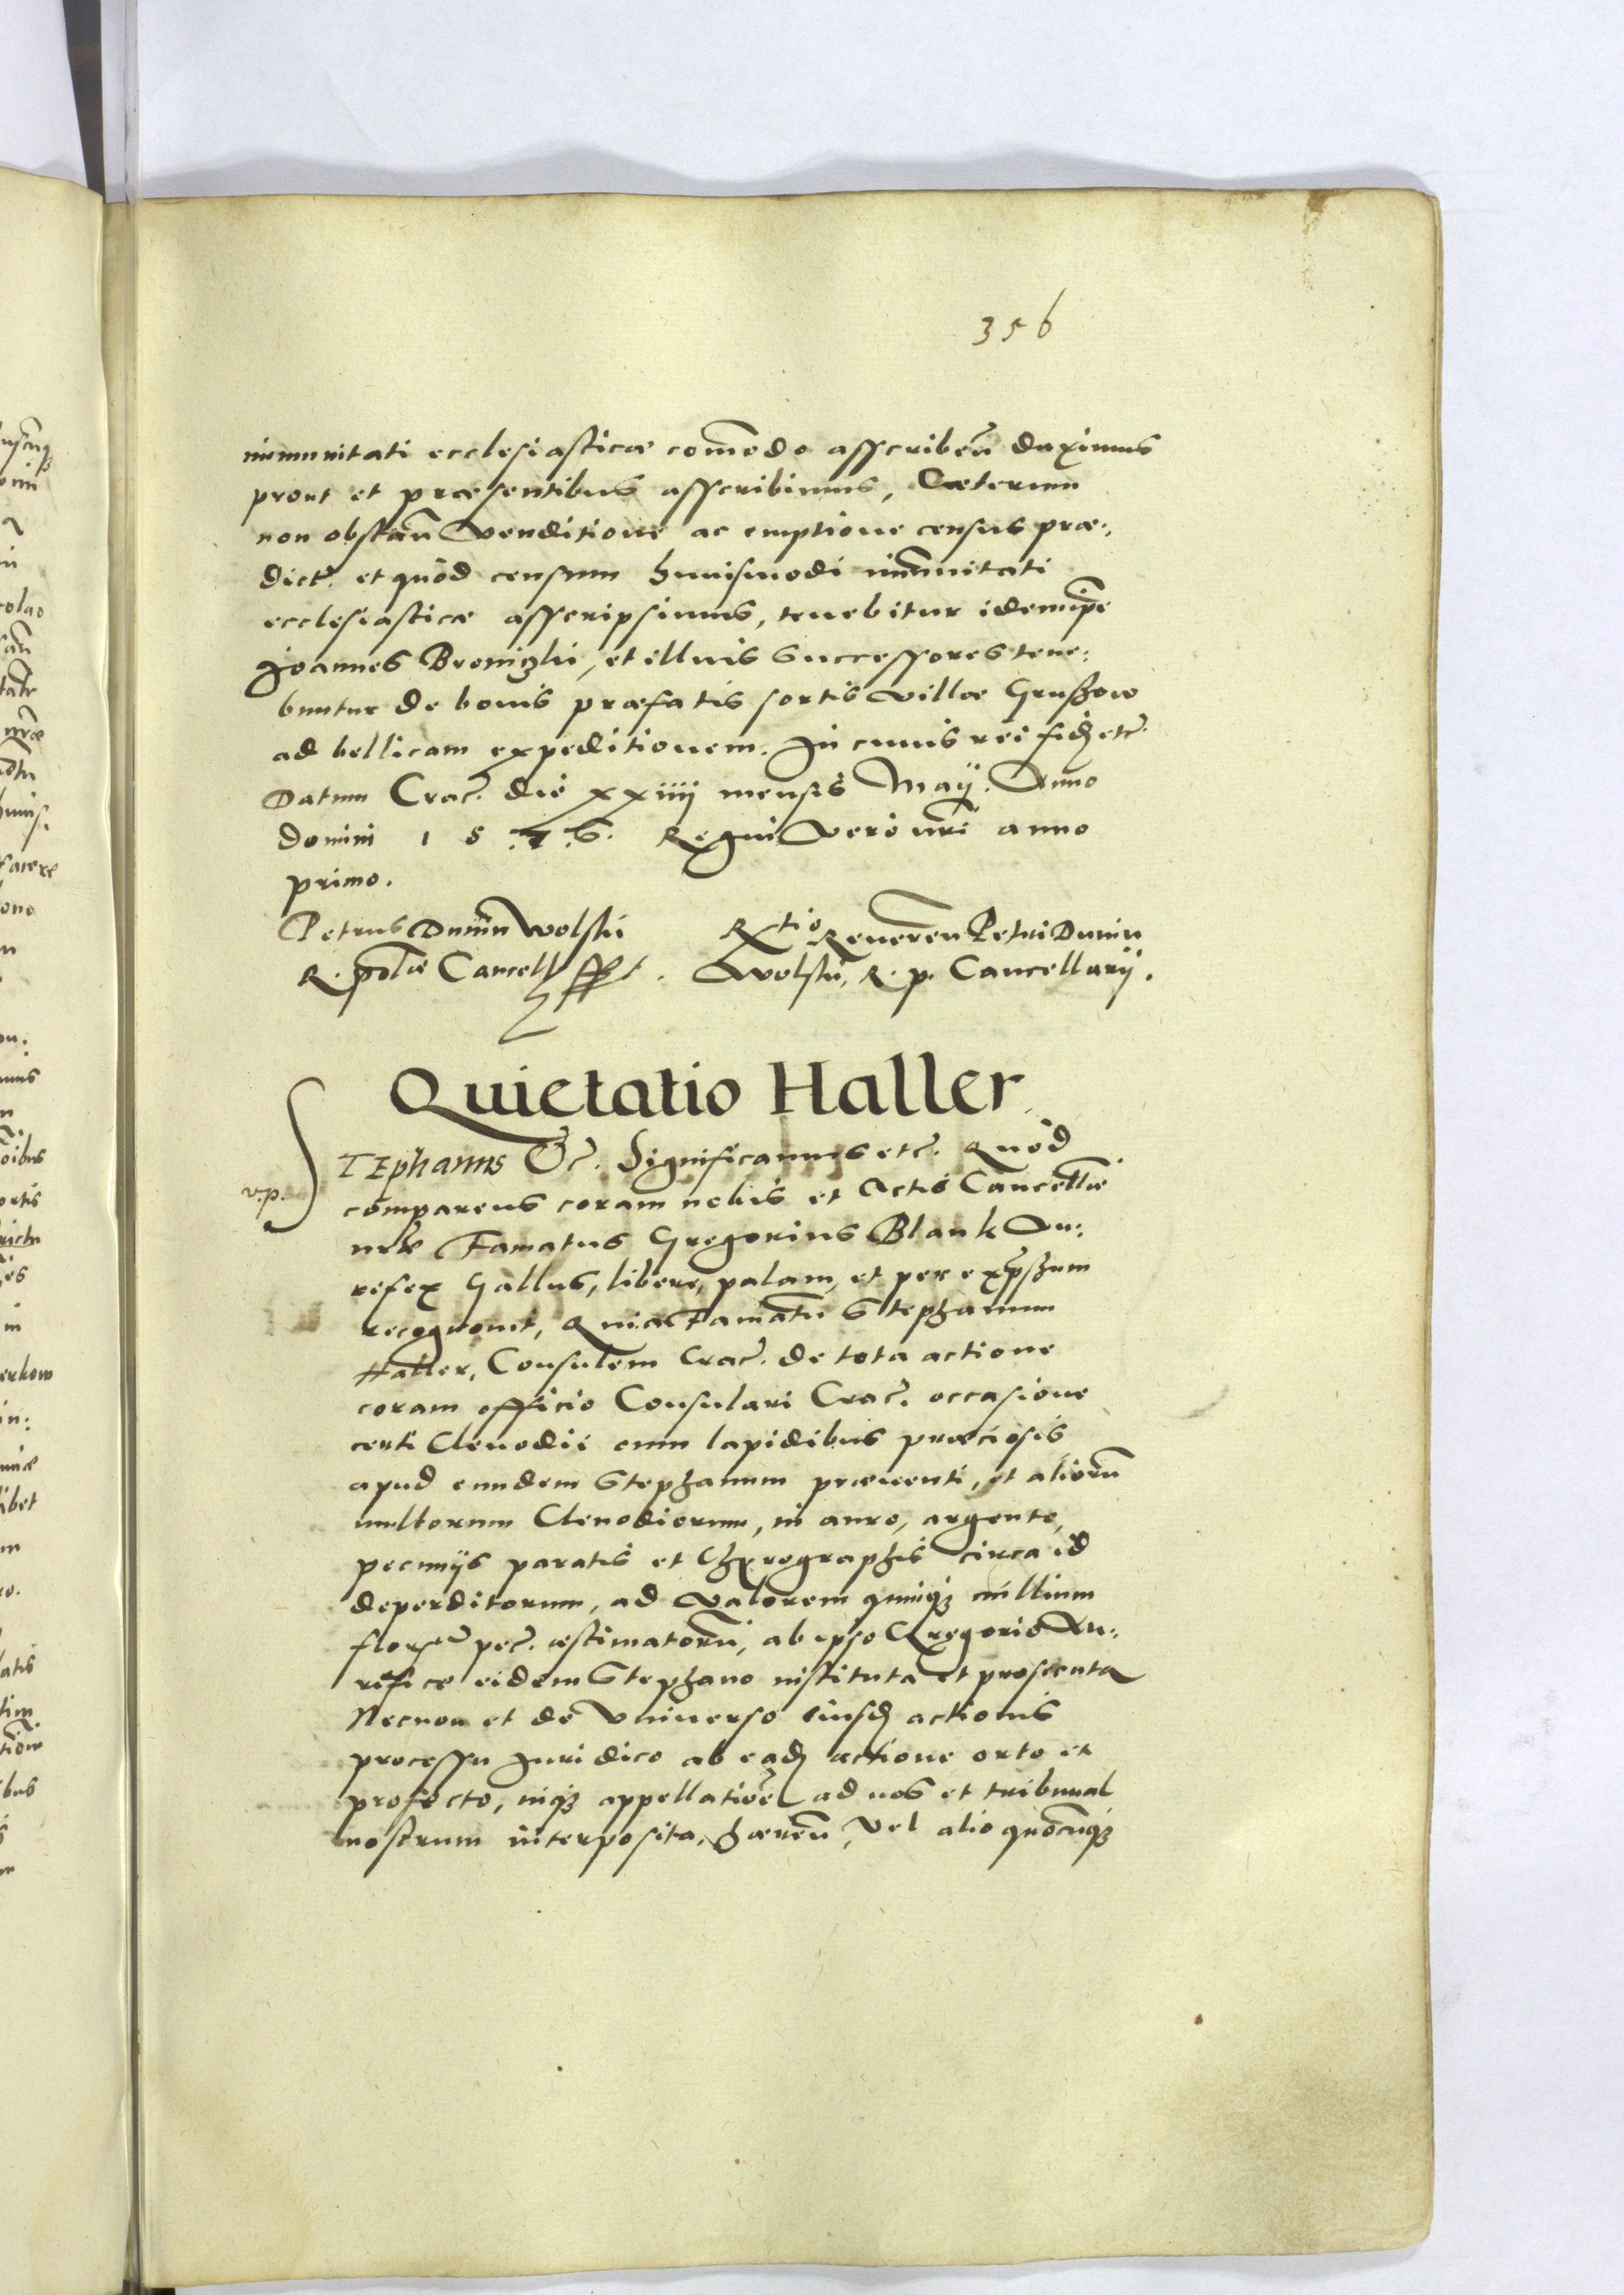 356
immunitati ecclesiasticæ com̃odo asscribeñ duximus
prout et præsentibus asscribimus, Cæterum
non obstañ venditione ac emptione census præ:
dict. et quòd censum huiusmodi im̃unitati
ecclesiasticæ asscripsimus, tenebitur idem
Joannes Broniczki, et illius successores tene:
buntur de bonis præfatis sortis villæ Gruszow
ad bellicam expeditionem. In cuius rei fidẽ etc.
Datum Crac. die xxiiij mensis Maij. Anno
Domini 1576. Regni vero nri anno
primo.
Petrus Dunin Wolski
R. Poloẽ Cancell. sst.
Rtio Reueren Petri Dunin
Wolski, R. p. Cancellarij.
Quietatio Haller
v.p.
STEphanus &c. Significamus etc. Quòd
comparens coram nobis et Actis Cancellæ
nræ Famatus Gregorius Blank Au:
rifex Gallus, libere, palam, et per exp̃ssum
recognouit, Quia Famatũ Stephanum
Haller, Consulem Crac. de tota actione
coram officio Consulari Crac. occasione
certi Clenodii cum lapidibus præciosis
apud eundem Stephanum præuenti, et aliorũ
multorum Clenodiorum, in auro, argento,
pecuniis paratis et Chyrographis circa id
deperditorum, ad valorem quinq3 millium
flor. pec. æstimatorũ, ab ipso Gregorio Au:
rifice eidem Stephano instituta et prosecuta
Necnon et de vniuerso eiusd actionis
processu Juridico ab ead actione orto et
profecto, inq3 appellatioẽ ad nos et tribunal
nostrum interposita, hæreñ, vel alio quocunq3